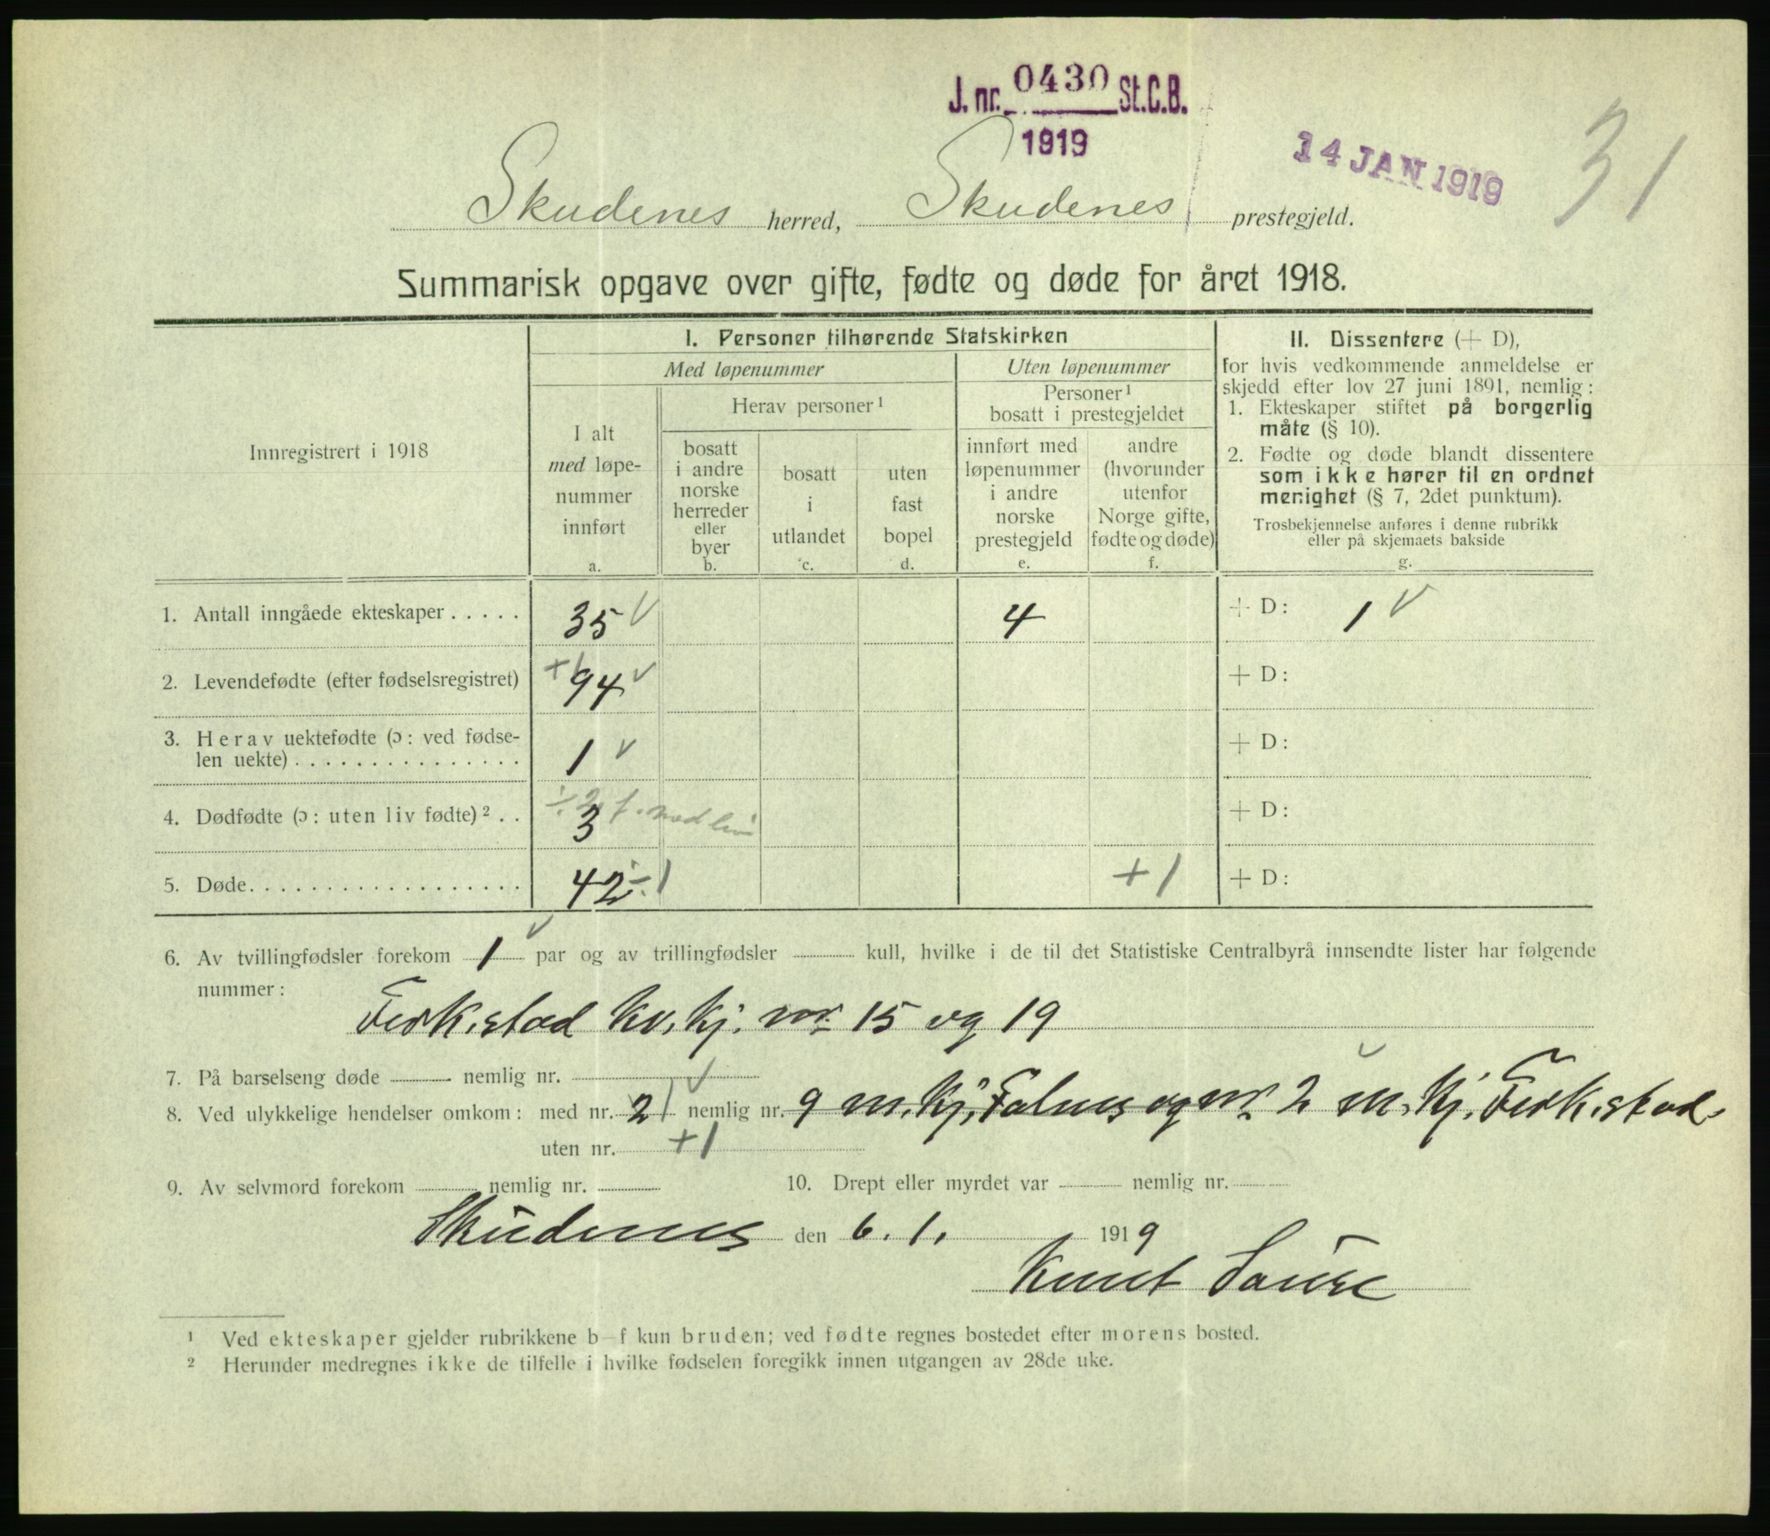 J. nr. 0430 St.C.B.
1919
14 JAN 1919
31
Skudenes herred, Skudenes prestegjeld.
Summarisk opgave over gifte, fødte og døde for året 1918.
Innregistrert i 1918
I. Personer tilhørende Statskirken
Med løpenummer
Uten løpenummer
I alt
med løpe-
nummer
innført
a.
Herav personer ¹
bosatt
i andre
norske
herreder
eller
byer
b.
bosatt
i
utlandet
c.
uten
fast
bopel
d.
Personer ¹
bosatt i prestegjeldet
innført med
løpenummer
i andre
norske
prestegjeld
e.
andre
(hvorunder
utenfor
Norge gifte,
fødte og døde)
f.
II. Dissentere (+ D),
for hvis vedkommende anmeldelse er
skjedd efter lov 27 juni 1891, nemlig:
1. Ekteskaper stiftet på borgerlig
måte (§ 10).
2. Fødte og døde blandt dissentere
som ikke hører til en ordnet
menighet (§ 7, 2det punktum).
Trosbekjennelse anføres i denne rubrikk
eller på skjemaets bakside
g.
1. Antall inngåede ekteskaper . . . . . 35 √ 4 + D: 1 √
2. Levendefødte (efter fødselsregistret) +1 94 √ + D:
3. Herav uektefødte (ɔ: ved fødse-
len uekte) . . . . . . . . . . . . . . . 1 √ + D:
4. Dødfødte (ɔ: uten liv fødte) ² . . ÷ 2 f. med liv 3 + D:
5. Døde. . . . . . . . . . . . . . . . . . 42 ÷ 1 + 1 + D:
6. Av tvillingfødsler forekom 1 √ par og av trillingfødsler kull, hvilke i de til det Statistiske Centralbyrå innsendte lister har følgende
nummer:
Ferkistad kv. kj. nr 15 og 19
7. På barselseng døde nemlig nr. √
8. Ved ulykkelige hendelser omkom: med nr. 2 nemlig nr. 9 m. kj. Falnes og nr 2 m. kj. Ferkistad
uten nr. +1
9. Av selvmord forekom nemlig nr.
10. Drept eller myrdet var nemlig nr.
Skudenes den 6. 1. 1919
Knut
¹ Ved ekteskaper gjelder rubrikkene b–f kun bruden; ved fødte regnes bostedet efter morens bosted.
² Herunder medregnes ikke de tilfelle i hvilke fødselen foregikk innen utgangen av 28de uke.